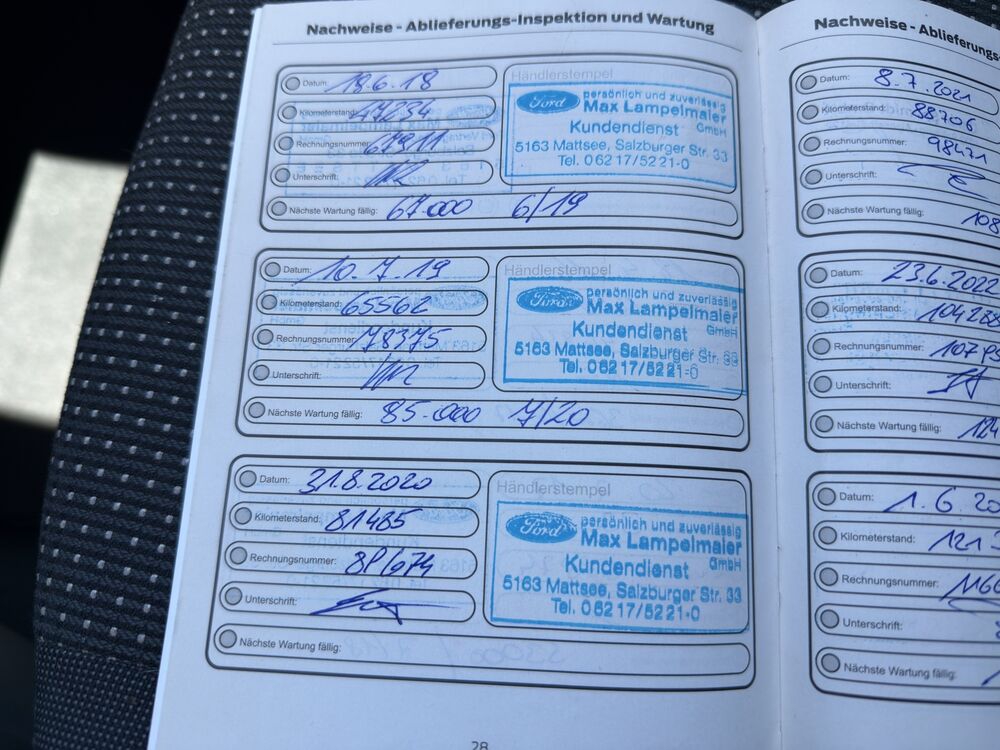 Nachweise - Ablieferungs-Inspektion und Wartung
Datum: 18.6.18
Kilometerstand: 47234
Rechnungsnummer: 67911
Unterschrift:
Händlerstempel
Ford
persönlich und zuverlässig
Max Lampelmaier
GmbH
Kundendienst
5163 Mattsee, Salzburger Str. 33
Tel. 0 62 17/52 21-0
Nächste Wartung fällig: 67.000 6/19
Datum: 10.7.19
Kilometerstand: 65562
Rechnungsnummer: 78375
Unterschrift:
Händlerstempel
Ford
persönlich und zuverlässig
Max Lampelmaier
GmbH
Kundendienst
5163 Mattsee, Salzburger Str. 33
Tel. 0 62 17/52 21-0
Nächste Wartung fällig: 85.000 7/20
Datum: 31.8.2020
Kilometerstand: 81485
Rechnungsnummer:
Unterschrift:
Händlerstempel
Ford
persönlich und zuverlässig
Max Lampelmaier
GmbH
Kundendienst
5163 Mattsee, Salzburger Str. 33
Tel. 0 62 17/52 21-0
Nächste Wartung fällig:
28
Nachweise - Ablieferungs-
Datum: 8.7.2021
Kilometerstand: 88706
Rechnungsnummer: 98471
Unterschrift:
Nächste Wartung fällig: 108
Datum: 23.6.2022
Kilometerstand: 104288
Rechnungsnummer:
Unterschrift:
Nächste Wartung fällig: 124
Datum: 1.6.20
Kilometerstand: 121
Rechnungsnummer: 1166
Unterschrift:
Nächste Wartung fällig: